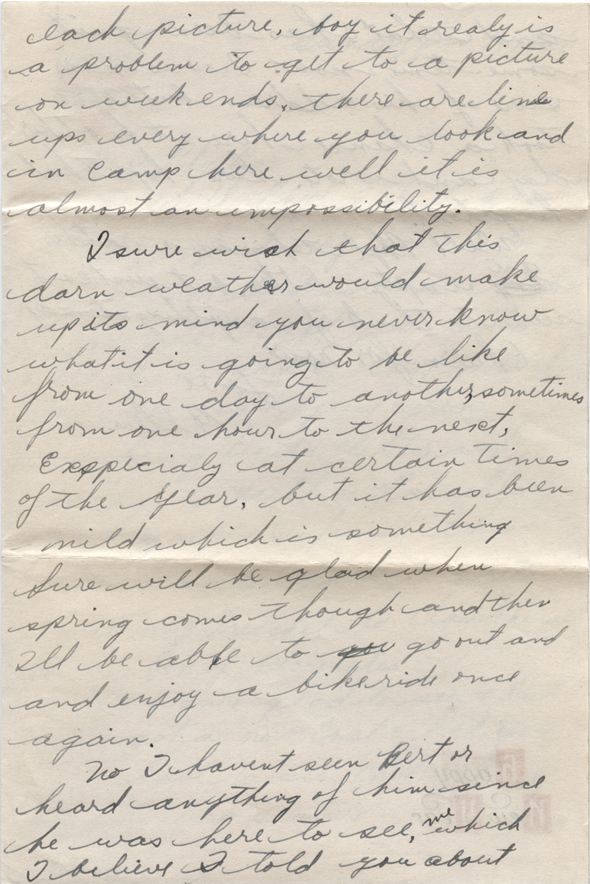 each picture, boy it realy is
a problem to get to a picture
on week ends, there are line
ups every where you look and
in Camp here well it is
almost an impossibility.
I sure wish that this
darn weather would make
up its mind you never know
what it is going to be like
from one day to another, sometimes
from one hour to the next,
Exspecialy at certain times
of the Year, but it has been
mild which is something
Sure will be glad when
spring comes though and then
Ill be able to you go out and
and enjoy a bike ride once
again.
No I havent seen Bert or
heard anything of him since
he was here to see, me which
I believe I told you about